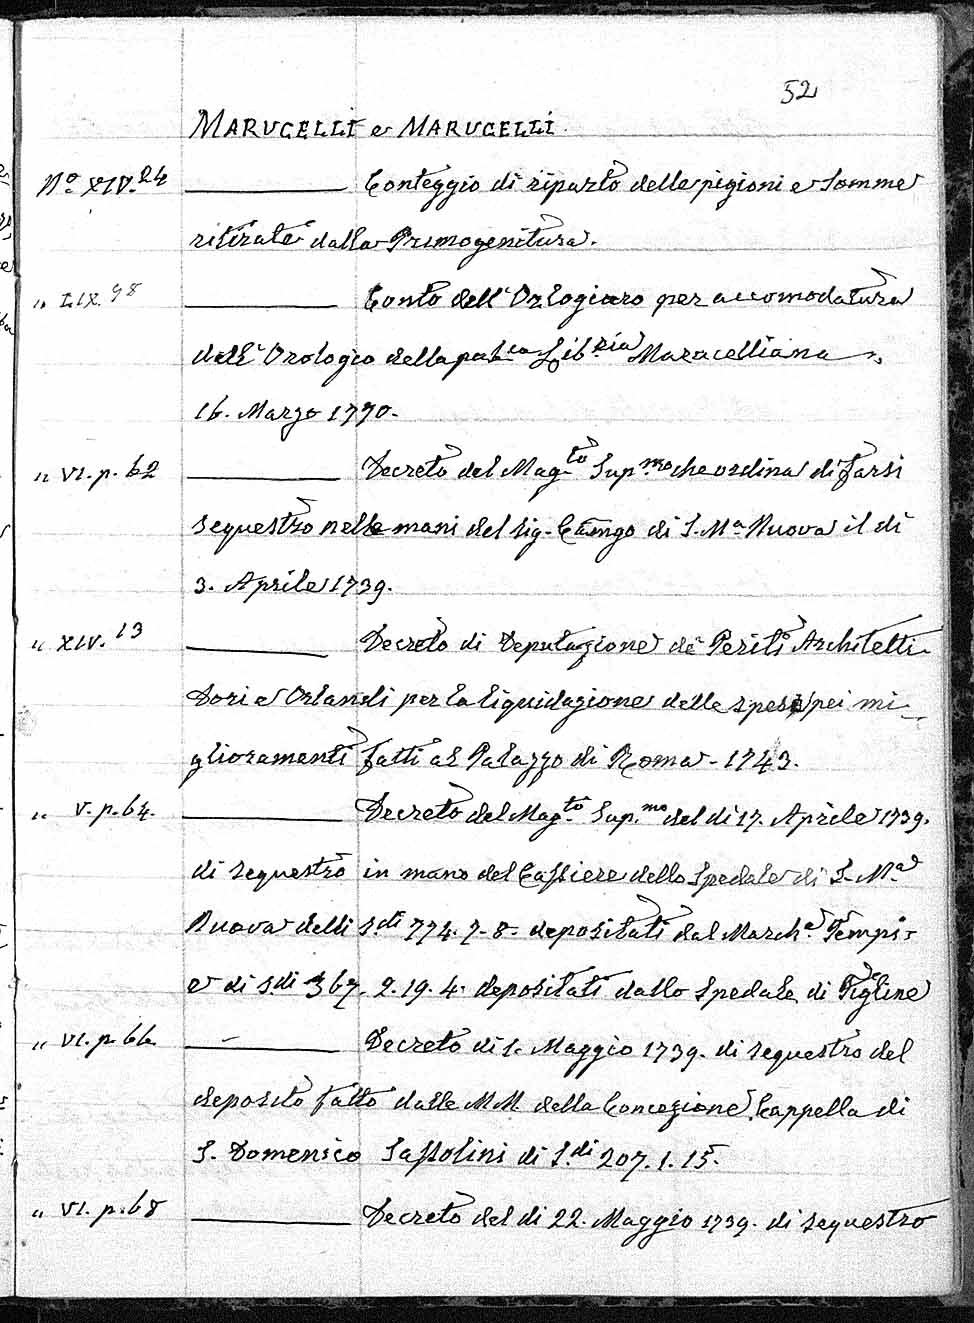 52
MARUCELLI e MARUCELLI
No. XIV. 24 Conteggio di riparto delle pigioni e Somme
ritirate dalla Primogenitura.
" LIX. 98 Conto dell'Orlogiaro per accomodatura
dell'Orologio della pub.ca Lib.ria Marucelliana
16. Marzo 1770.
" VI. p. 62 Decreto del Mag.to Sup.mo che ordina di farsi
sequestro nelle mani del sig. Camgo di S. Ma. Nuova il dì
3. Aprile 1739.
" XIV. 13 Decreto di Deputazione de' Periti Architetti
Dori e Orlandi per la liquidazione delle spese pei mi-
glioramenti fatti al Palazzo di Roma - 1743.
" V. p. 64. Decreto del Mag.to Sup.mo del dì 17. Aprile 1739.
di sequestro in mano del Cassiere dello Spedale di S. Ma.
Nuova delli s.di 774. 7. 8. depositati dal March.e Tempi.
e di s.di 367. 2. 19. 4. depositati dallo Spedale di Figline
" VI. p. 66. Decreto di 1. Maggio 1739. di sequestro del
deposito fatto dalle MM. della Concezione Cappella di
S. Domenico Sassolini di S.di 207. 1. 15.
" VI. p. 68 Decreto del dì 22. Maggio 1739. di sequestro